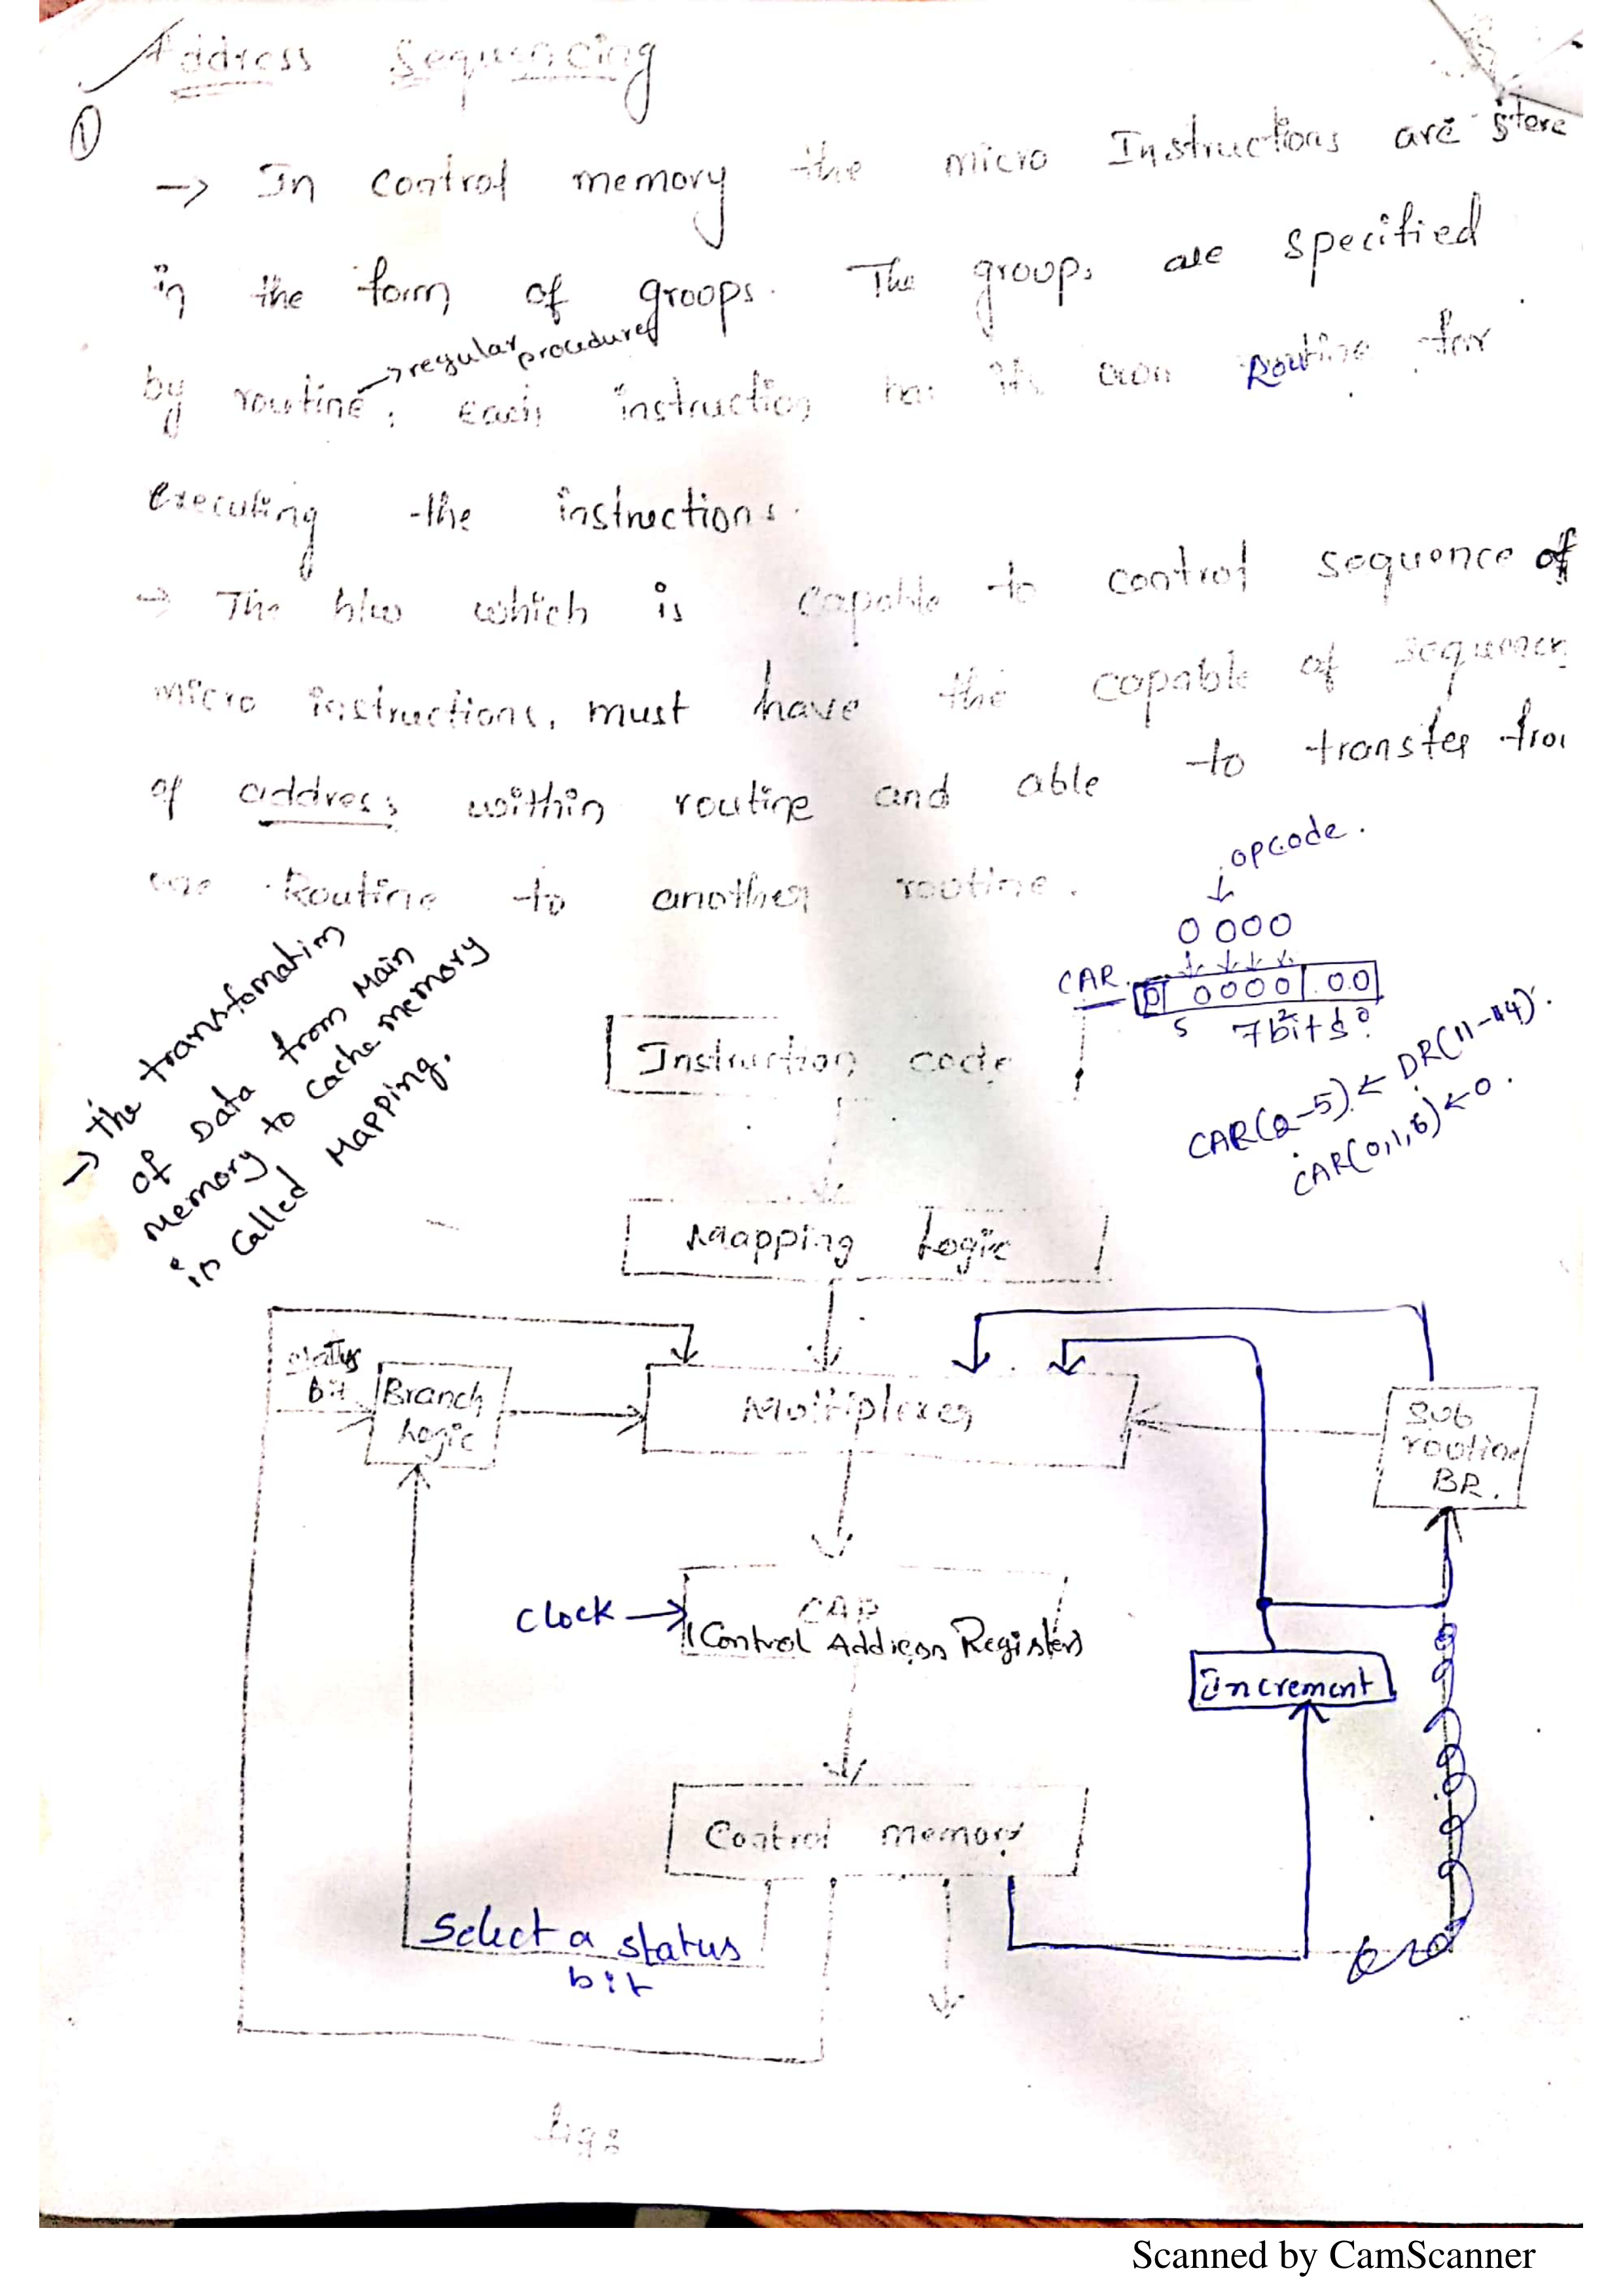 Address Sequencing
①
→ In control memory the micro Instructions are store
in the form of groups. The groups are specified
→ regular procedure
by routine; Each instruction has its own Routine for
executing the instructions.
→ The h/w which is capable to control sequence of
micro instructions, must have the capable of sequencn
of address within routine and able to transfer from
one Routine to another routine.
→ the transfomation
of Data from Main
Memory to Cache Memory
is Called Mapping.
opcode.
↓
0 000
CAR.
0 0000 00
5 2 0
7bits
CAR(2-5) ← DR(11-14).
CAR(0,1,6) ← 0.
Instruction code
Mapping Logic
status
bit
Branch
Logic
Multiplexer
Sub
routine
BR.
Clock →
CAR
(Control Address Register)
Increment
Control memory
Select a status
bit
fig:
Scanned by CamScanner